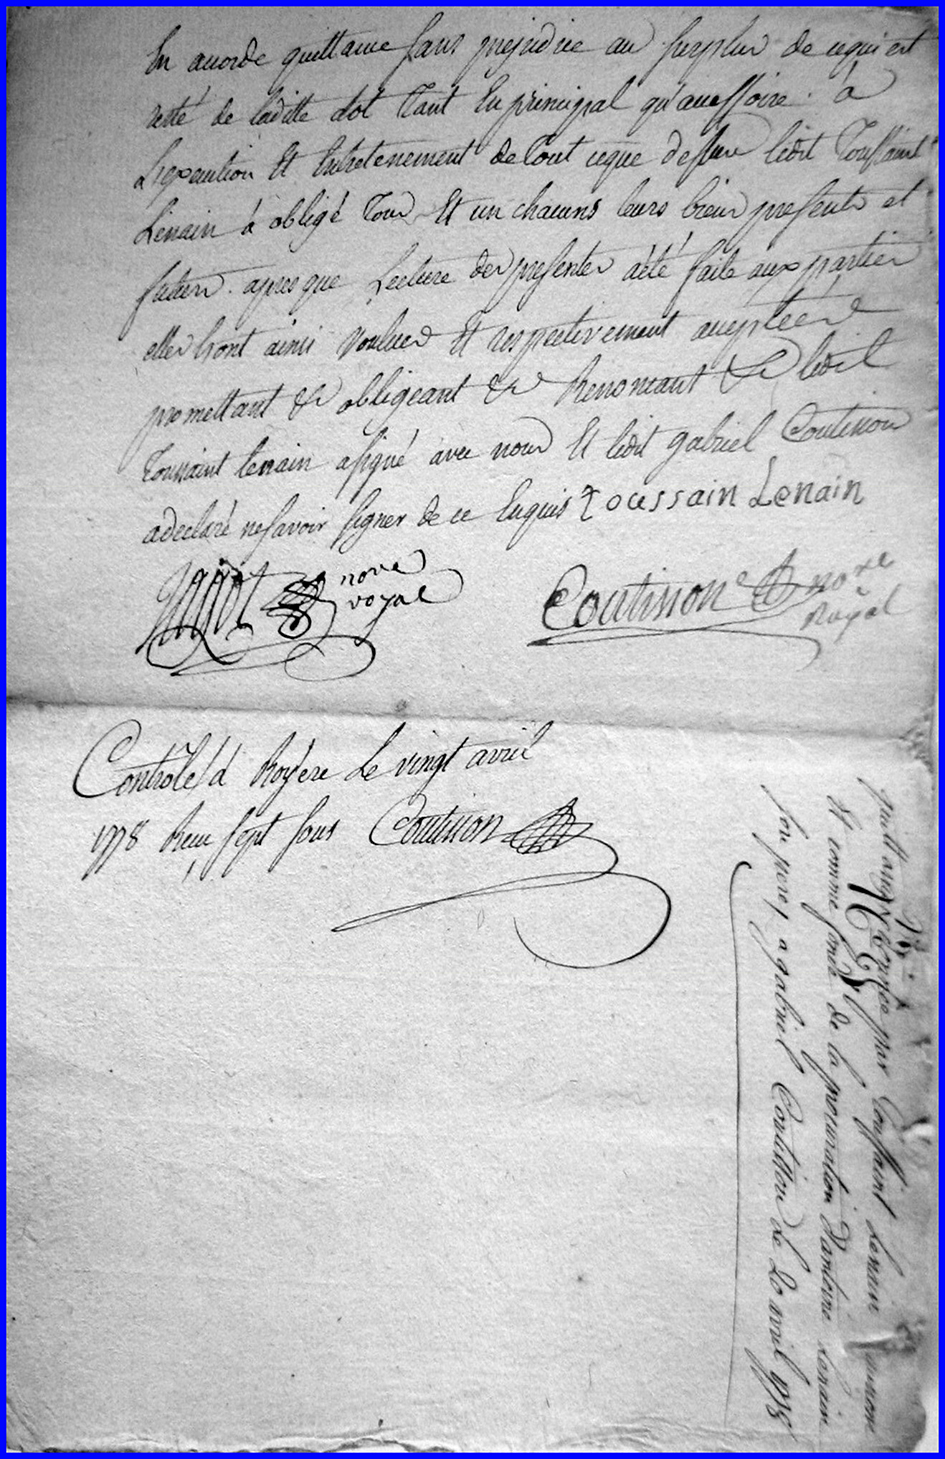 En acorde quittance sans prejudice au surplus de cequi est
resté de laditte dot tant En principal qu'accessoire. à
L'execution Et Entretenement de tout ceque dessus ledit Toussaint
Lenain à obligé tous Et un chacuns leurs biens presents et
futurs. apres que Lecture des presentes a été faite aux parties
elles l'ont ainsi voulues Et respectivement acceptées
promettant &c obligeant &c Renoncant &c ledit
Toussaint lenain a signé avec nous Et ledit gabriel Coutisson
a declaré ne savoir signer de ce Enquis Toussain Lenain
nore royal
Coutisson nore Royal
Controlé à Royere Le vingt avril
1778 Recu sept sous Coutisson
quittance donnée par Toussaint Lenain
Et comme fondé de la procuration d'antoine Lenain
son pere, a gabriel Coutisson Le 20 avril 1778